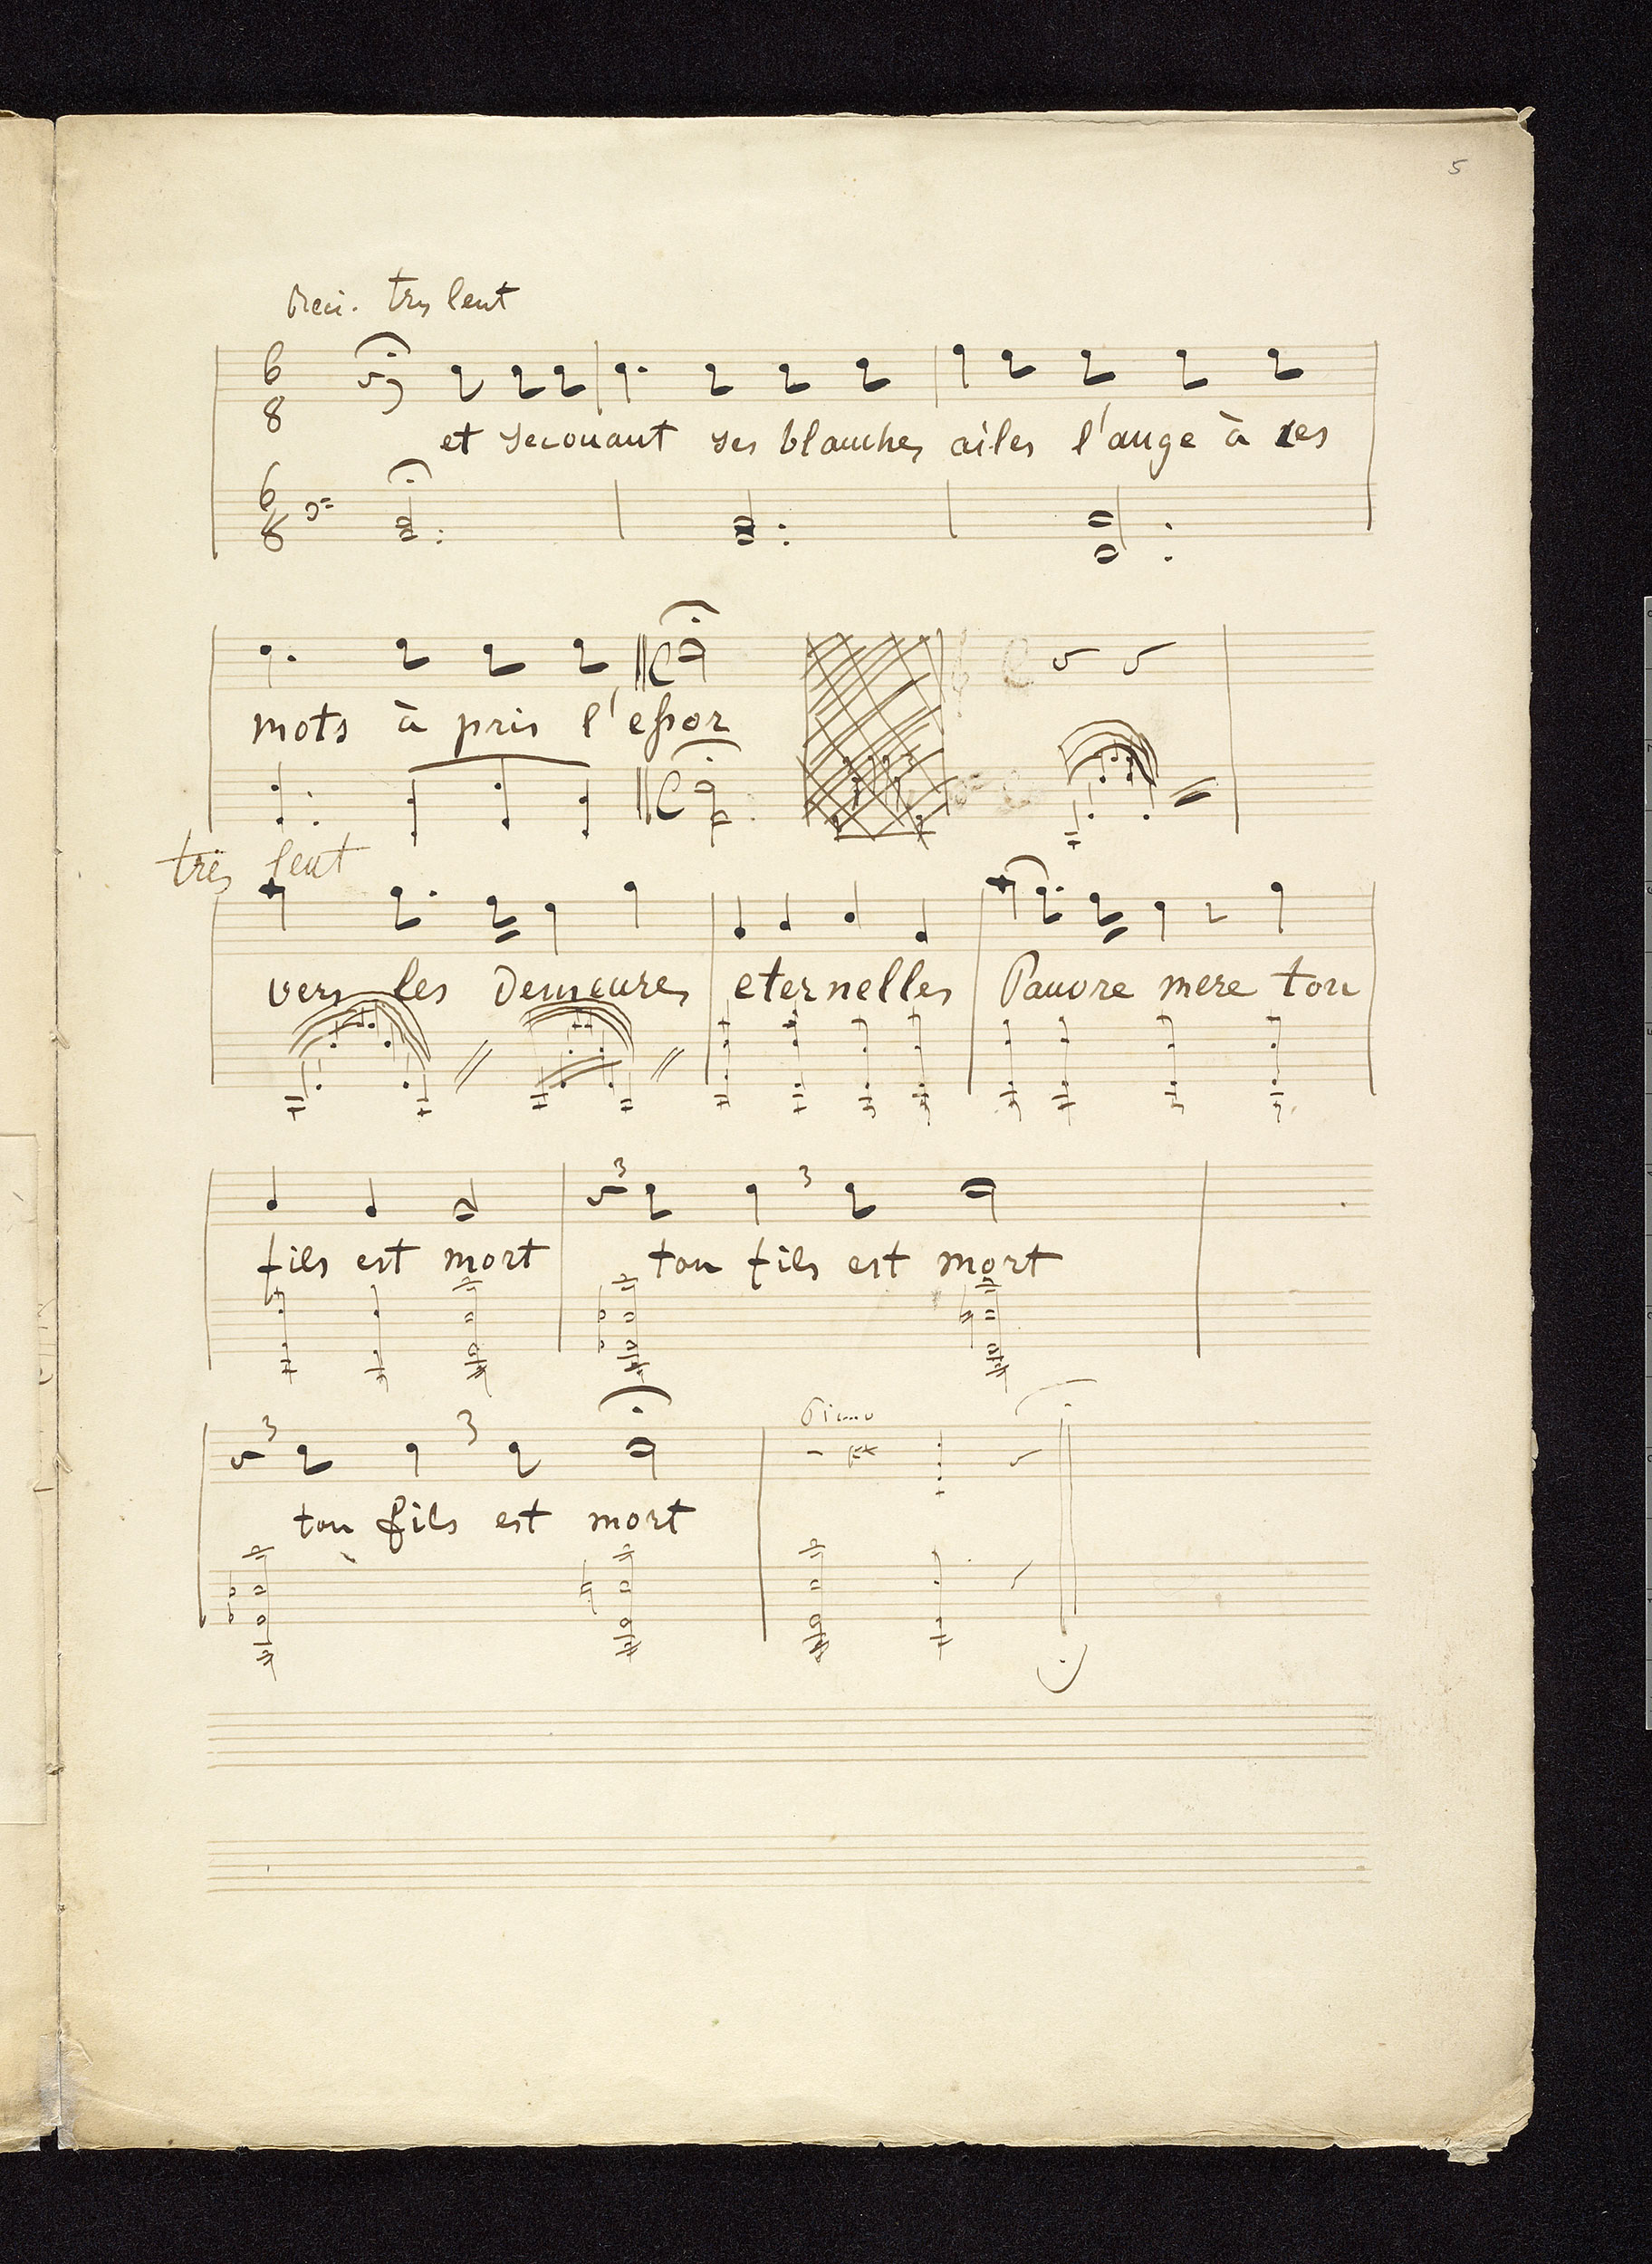 5
très lent
6 8
et secouant ses blanches ailes l'ange à ces
6 8
C
mots à pris l'essor
C
3
très lent
vers les Demeures eternelles Pauvre mere ton
3 3
fils est mort ton fils est mort
3 3
ton fils est mort